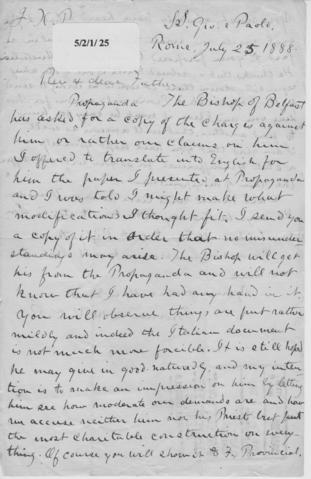 J. X. P.
5/2/1/25
SS. Giov. e Paolo,
Rome, July 25 1888.
Rev & dear Father
Propaganda The Bishop of Belfast
has asked for a copy of the charges against
him or rather our claims on him.
I offered to translate into English for
him the paper I presented at Propaganda
and I was told I might make what
modifications I thought fit. I send you
a copy of it in order that no misunder
standings may arise. The Bishop will get
his from the Propaganda and will not
know that I have had any hand in it.
You will observe things are put rather
mildly and indeed the Italian document
is not much more forcible. It is still hoped
he may give in good-naturedly, and my inten
tion is to make an impression on him by letting
him see how moderate our demands are and how
we accuse neither him nor his Priests but put
the most charitable construction on every-
thing. Of course you will show it to Fr. Provincial.